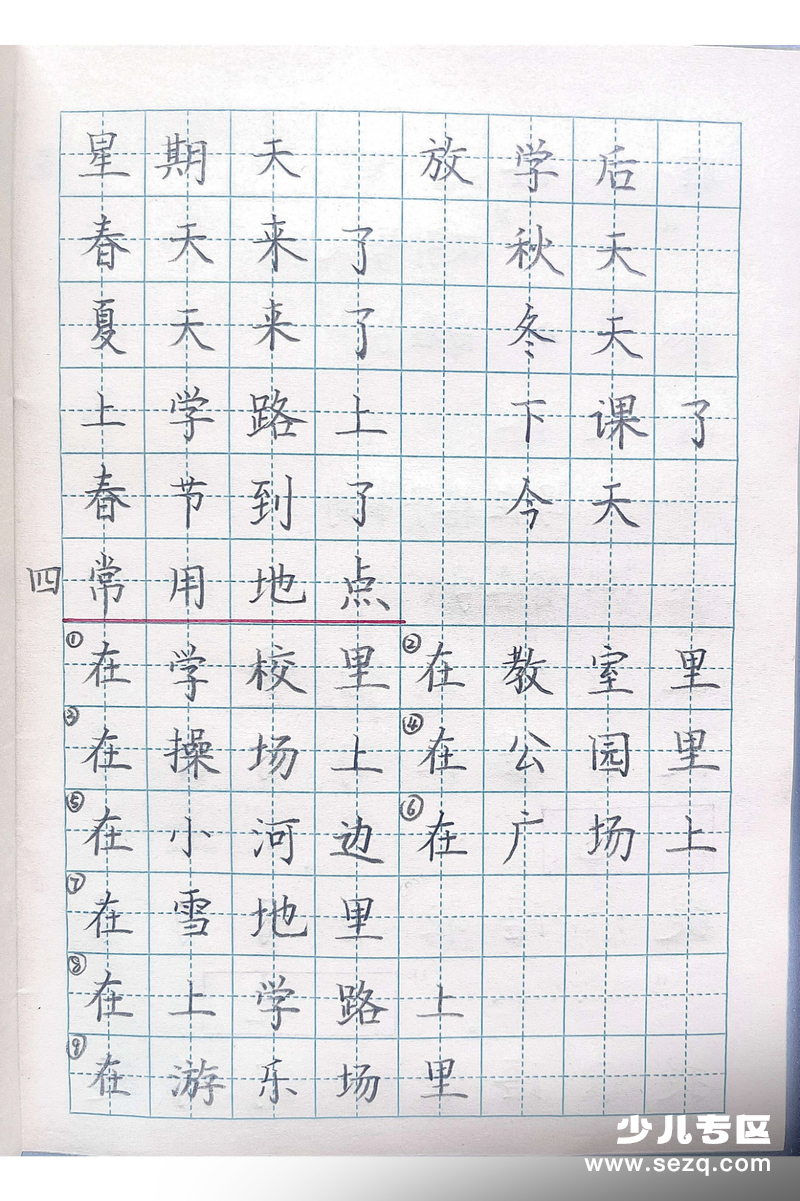 星期天 放学后
春天来了 秋天
夏天来了 冬天
上学路上 下课了
春节到了 今天
四 常用地点
①在学校里 ②在教室里
③在操场上 ④在公园里
⑤在小河边 ⑥在广场上
⑦在雪地里
⑧在上学路上
⑨在游乐场里
少儿专区
www.sezq.com